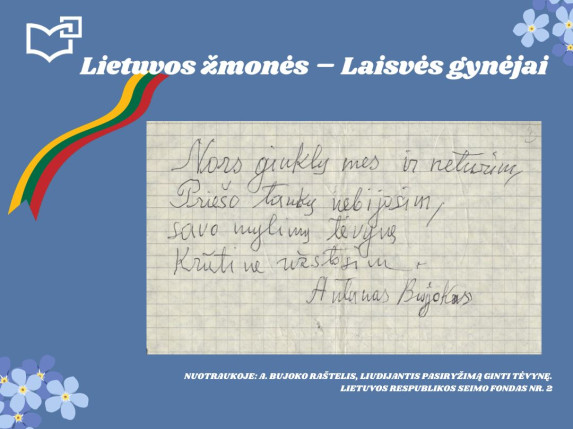 Lietuvos žmonės – Laisvės gynėjai
Nors ginklų mes ir neturim,
Priešo tankų nebijosim,
savo mylimą tėvynę
Krūtine užstosim.
Antanas Bujokas
NUOTRAUKOJE: A. BUJOKO RAŠTELIS, LIUDIJANTIS PASIRYŽIMĄ GINTI TĖVYNĘ.
LIETUVOS RESPUBLIKOS SEIMO FONDAS NR. 2